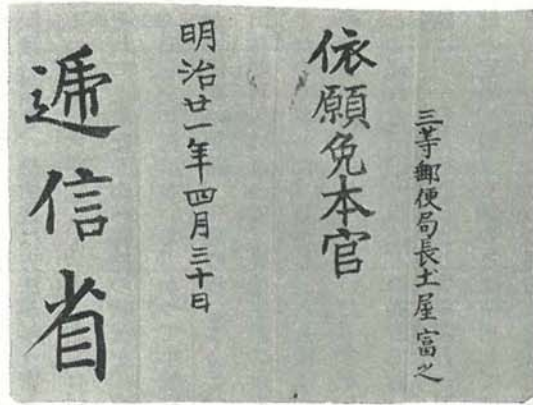 三等郵便局長土屋富之
依願免本官
明治廿一年四月三十日
逓信省